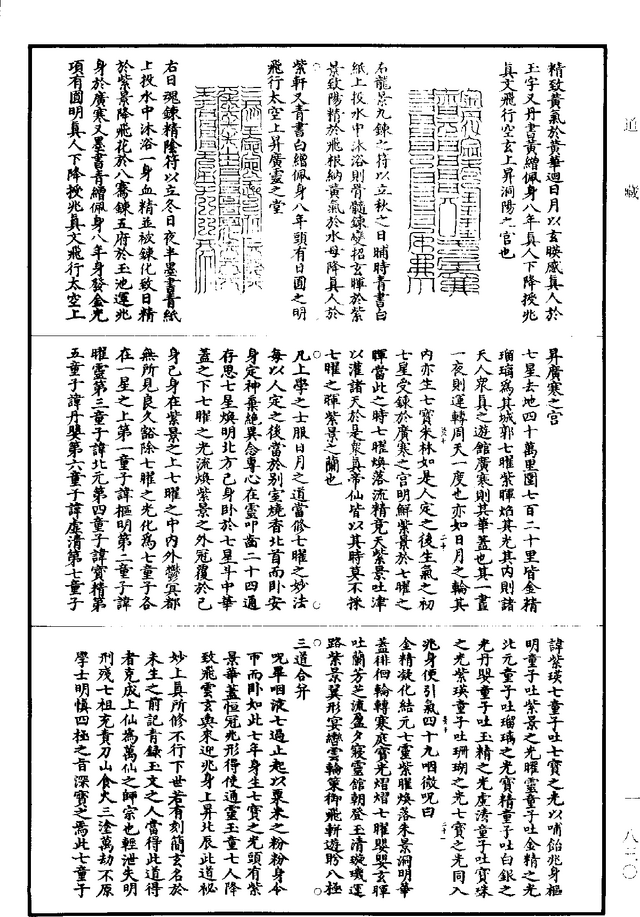 道藏
精致黃氣於黃華迴日月以玄暎感真人於
玉字又丹書黃繒佩身八年真人下降授兆
真文飛行空玄上昇洞陽之宮也
右龍景九鍊之符以立秋之日晡時青書白
紙上投水中沐浴則骨髓鍊變招玄暉於紫
景致陽精於飛根納黃氣於水母降真人於
紫軒又青書白繒佩身八年頭有日圓之明
飛行太空上昇廣靈之堂
右日魂鍊精陰符以立冬日夜半墨書青紙
上投水中沐浴一身血精並被鍊化致日精
於紫景降飛花於八騫鍊五府於玉池運兆
身於廣寒又墨書青繒佩身八年身發金光
項有圓明真人下降授兆真文飛行太空上
昇廣寒之宮
七星去地四十萬里圍七百二十里皆金精
瑠璃為其城郭七曜紫暉焰其光其內則諸
天人眾真之遊館廣寒則其華蓋也其一晝
一夜則運轉周天一度也亦如日月之輪其
內亦生七寶朱林如是人定之後生氣之初
七星受鍊於廣寒之宮明鮮紫景於七曜之
暉當此之時七曜煥落流精竟天紫景吐津
以灌諸天於是眾真帝仙皆以其時莫不採
七曜之暉紫景之蘭也
凡上學之士服日月之道當修七曜之妙法
每以人定之後當於別室燒香北首而臥安
身定神棄絕異念專心在靈叩齒二十四通
存思七星煥明北方己身臥於七星斗中華
蓋之下七曜之光流煥紫景之外冠覆於己
身己身在紫景之上七曜之中內外鬱冥都
無所見良久豁除七曜之光化為七童子各
在一星之上第一童子諱樞明第二童子諱
曜靈第三童子諱北元第四童子諱寶精第
五童子諱丹嬰第六童子諱虛清第七童子
諱紫瑛七童子吐七寶之光以哺飴兆身樞
明童子吐紫景之光曜靈童子吐金精之光
北元童子吐瑠璃之光寶精童子吐白銀之
光丹嬰童子吐玉精之光虛清童子吐寶珠
之光紫瑛童子吐珊瑚之光七寶之光同入
兆身便引氣四十九咽微呪曰
金精凝化結元七靈紫曜煥落朱景洞明華
蓋徘徊輪轉寒庭寶光熠熠七曜嬰嬰玄暉
吐蘭芳芝流盈夕寢靈館朝登玉清璇璣運
路紫景翼形宴轡雲輪策御飛軿遊眄八極
三道合并
呪畢咽液七過止起以粟米之粉粉身令
帀而臥如此七年身生七寶之光頭有紫
景華蓋恒冠兆形得使通靈玉童七人降
致飛雲玄輿來迎兆身上昇北辰此道祕
妙上真所修不行下世若有刻簡玄名於
未生之前記青籙玉文之人當得此道得
者克成上仙為萬仙之師宗也輕泄失明
刑殘七祖充責刀山食火三塗萬劫不原
學士明慎四極之旨深寶之焉此七童子
一八三〇